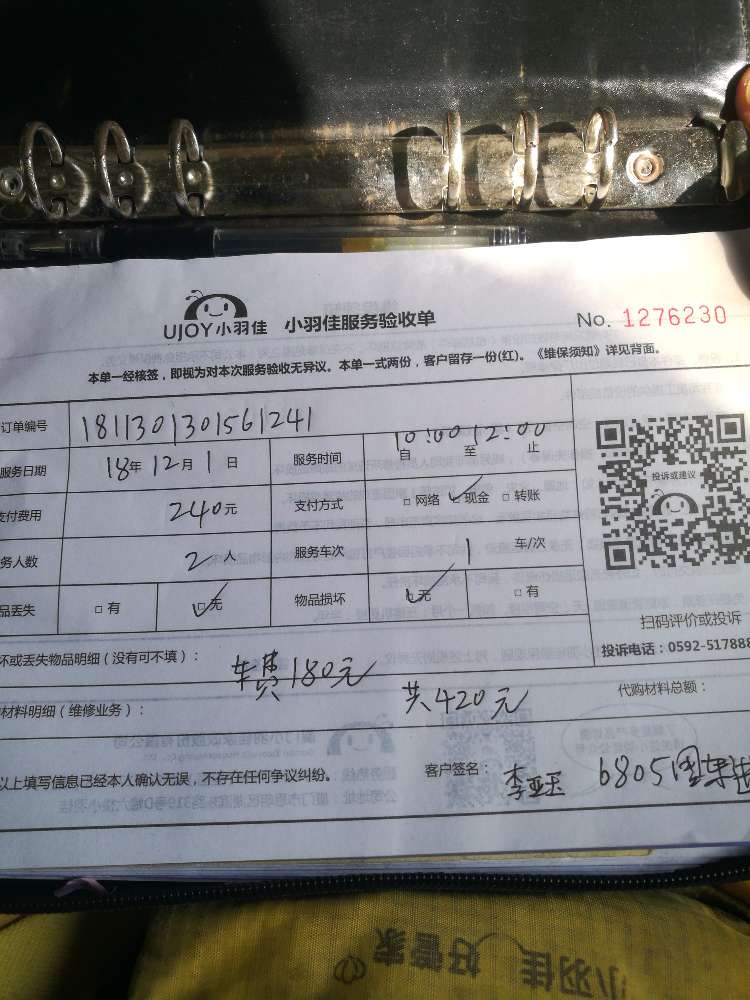 UJOY小羽佳 小羽佳服务验收单 No. 1276230
本单一经核签，即视为对本次服务验收无异议。本单一式两份，客户留存一份(红)。《维保须知》详见背面。
订单编号 1811301301561241
服务日期 18年12月1日 服务时间 10:00 12:00 自 至 止
支付费用 240元 支付方式 □网络 ✓现金 □转账
务人数 2人 服务车次 1 车/次
品丢失 □有 ☑无 物品损坏 ☑无 □有
投诉或建议
扫码评价或投诉
投诉电话：0592-517888
坏或丢失物品明细（没有可不填）： 车费180元
材料明细（维修业务）： 共420元 代购材料总额：
以上填写信息已经本人确认无误，不存在任何争议纠纷。 客户签名： 李亚玉 6805
小羽佳 好管家